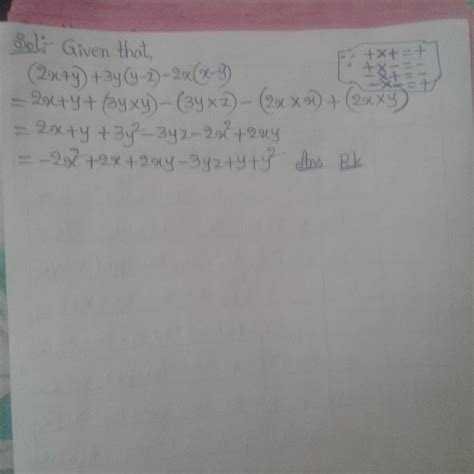 Sol:- Given that,
(2x+y)+3y(y-z)-2x(x-y)
= 2x+y+(3y×y)-(3y×z)-(2x×x)+(2x×y)
= 2x+y+3y²-3yz-2x²+2xy
= -2x²+2x+2xy-3yz+y+y² Ans Rk
∵ +×+=+
+×-=-
-×+=-
-×-=+